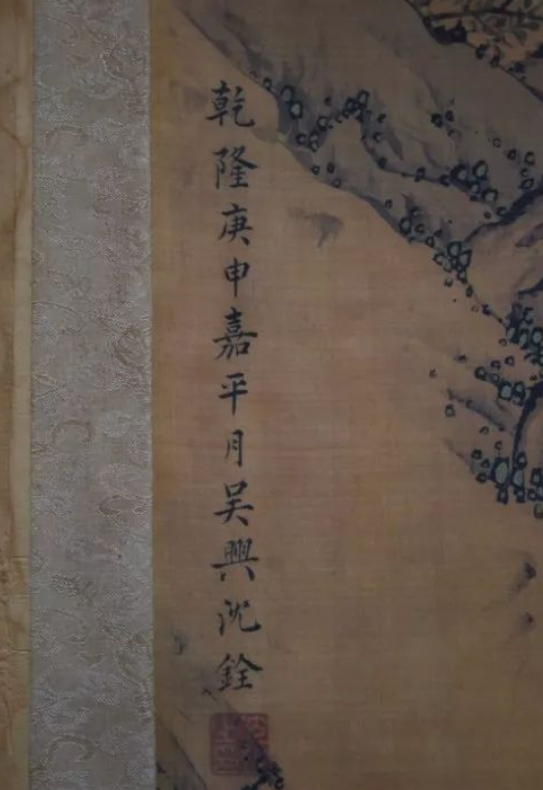 乾隆庚申嘉平月吳興沈銓